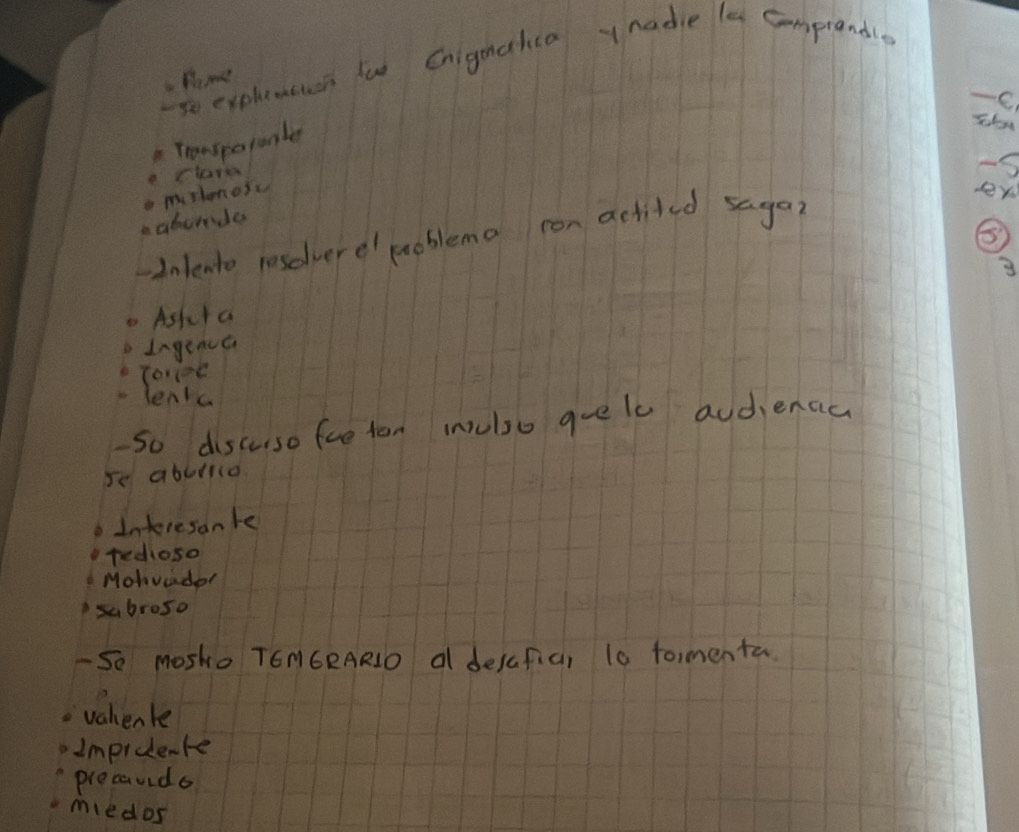 • Firme
- Su explicación fue Enigmatica y nadie la Comprendio
• Transparente
• Clara
• misteriosa
• aburrida
- Intento resolver el problema con actitud sagaz
• Astuta
• Ingenua
• Torpe
• lenta
- Su discurso fue tan insulso que la audiencia
se aburrio.
• Interesante
• tedioso
• Motivador
• sabroso
- Se mostro TEMERARIO al desafiar la tormenta.
• valiente
• Imprudente
• precavido
• miedos